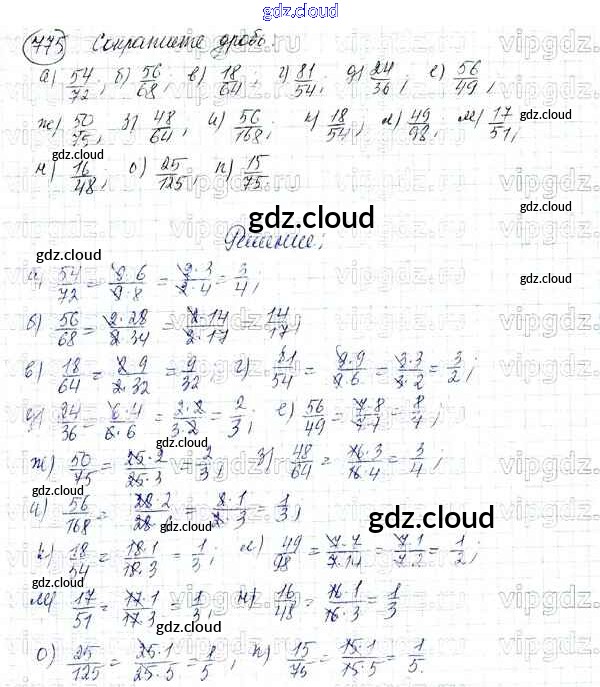 gdz.cloud
775 Сократите дробь:
а) 54/72; б) 56/68; в) 18/64; г) 81/54; д) 24/36; е) 56/49;
ж) 50/75; з) 48/64; и) 56/168; к) 18/54; л) 49/98; м) 17/51;
н) 16/48; о) 25/125; п) 15/75.
Решение:
а) 54/72 = 9·6/9·8 = 2·3/2·4 = 3/4;
б) 56/68 = 2·28/2·34 = 2·14/2·17 = 14/17;
в) 18/64 = 2·9/2·32 = 9/32; г) 81/54 = 9·9/9·6 = 3·3/3·2 = 3/2;
д) 24/36 = 6·4/6·6 = 2·2/3·2 = 2/3; е) 56/49 = 7·8/7·7 = 8/7;
ж) 50/75 = 25·2/25·3 = 2/3; з) 48/64 = 16·3/16·4 = 3/4;
и) 56/168 = 28·2/28· = 2·1/2·3 = 1/3;
к) 18/54 = 18·1/18·3 = 1/3; л) 49/98 = 7·7/7·14 = 7·1/7·2 = 1/2;
м) 17/51 = 17·1/17·3 = 1/3; н) 16/48 = 16·1/16·3 = 1/3
о) 25/125 = 25·1/25·5 = /5; п) 15/75 = 15·1/15·5 = 1/5.